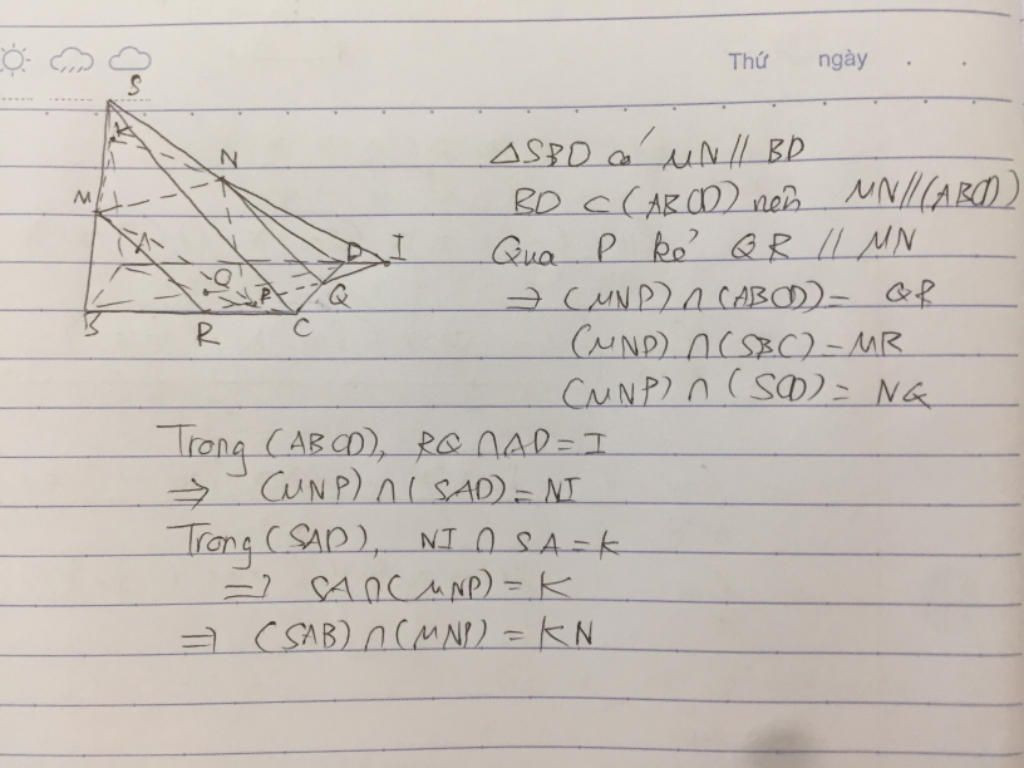 Thứ ngày . .
S
K
N
M
A
D I
O
P
Q
B
R
C
△SBD có MN // BD
BD ⊂ (ABCD) nên MN//(ABCD)
Qua P kẻ QR // MN
⇒ (MNP) ∩ (ABCD) = QR
(MNP) ∩ (SBC) = MR
(MNP) ∩ (SCD) = NQ
Trong (ABCD), RQ ∩ AD = I
⇒ (MNP) ∩ (SAD) = NI
Trong (SAD), NI ∩ SA = K
⇒ SA ∩ (MNP) = K
⇒ (SAB) ∩ (MNP) = KN